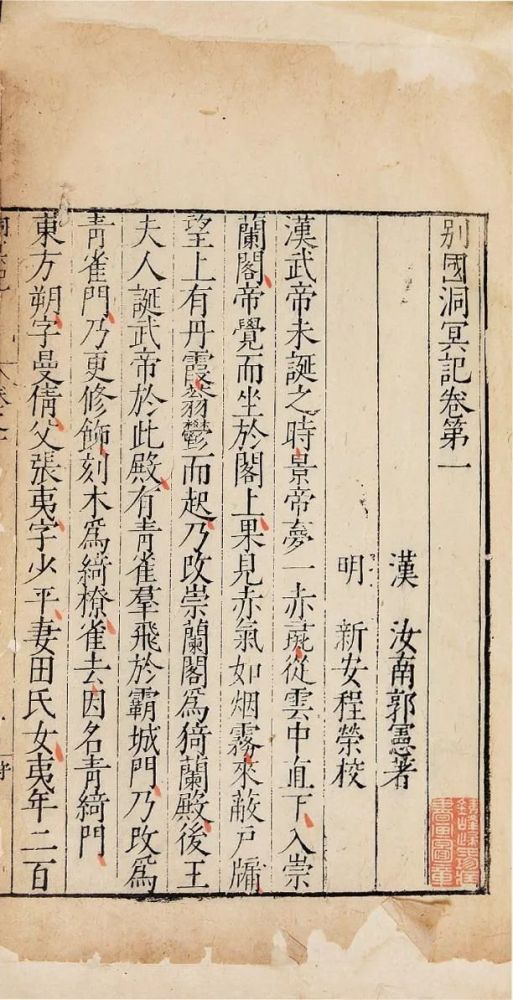 別國洞冥記卷第一
漢 汝南郭憲著
明 新安程榮校
漢武帝未誕之時景帝夢一赤彘從雲中直下入崇
蘭閣帝覺而坐於閣上果見赤氣如烟霧來蔽戶牖
望上有丹霞蓊鬱而起乃改崇蘭閣爲猗蘭殿後王
夫人誕武帝於此殿有青雀羣飛於霸城門乃改爲
青雀門乃更修飾刻木爲綺橑雀去因名青綺門
東方朔字曼倩父張夷字少平妻田氏女夷年二百